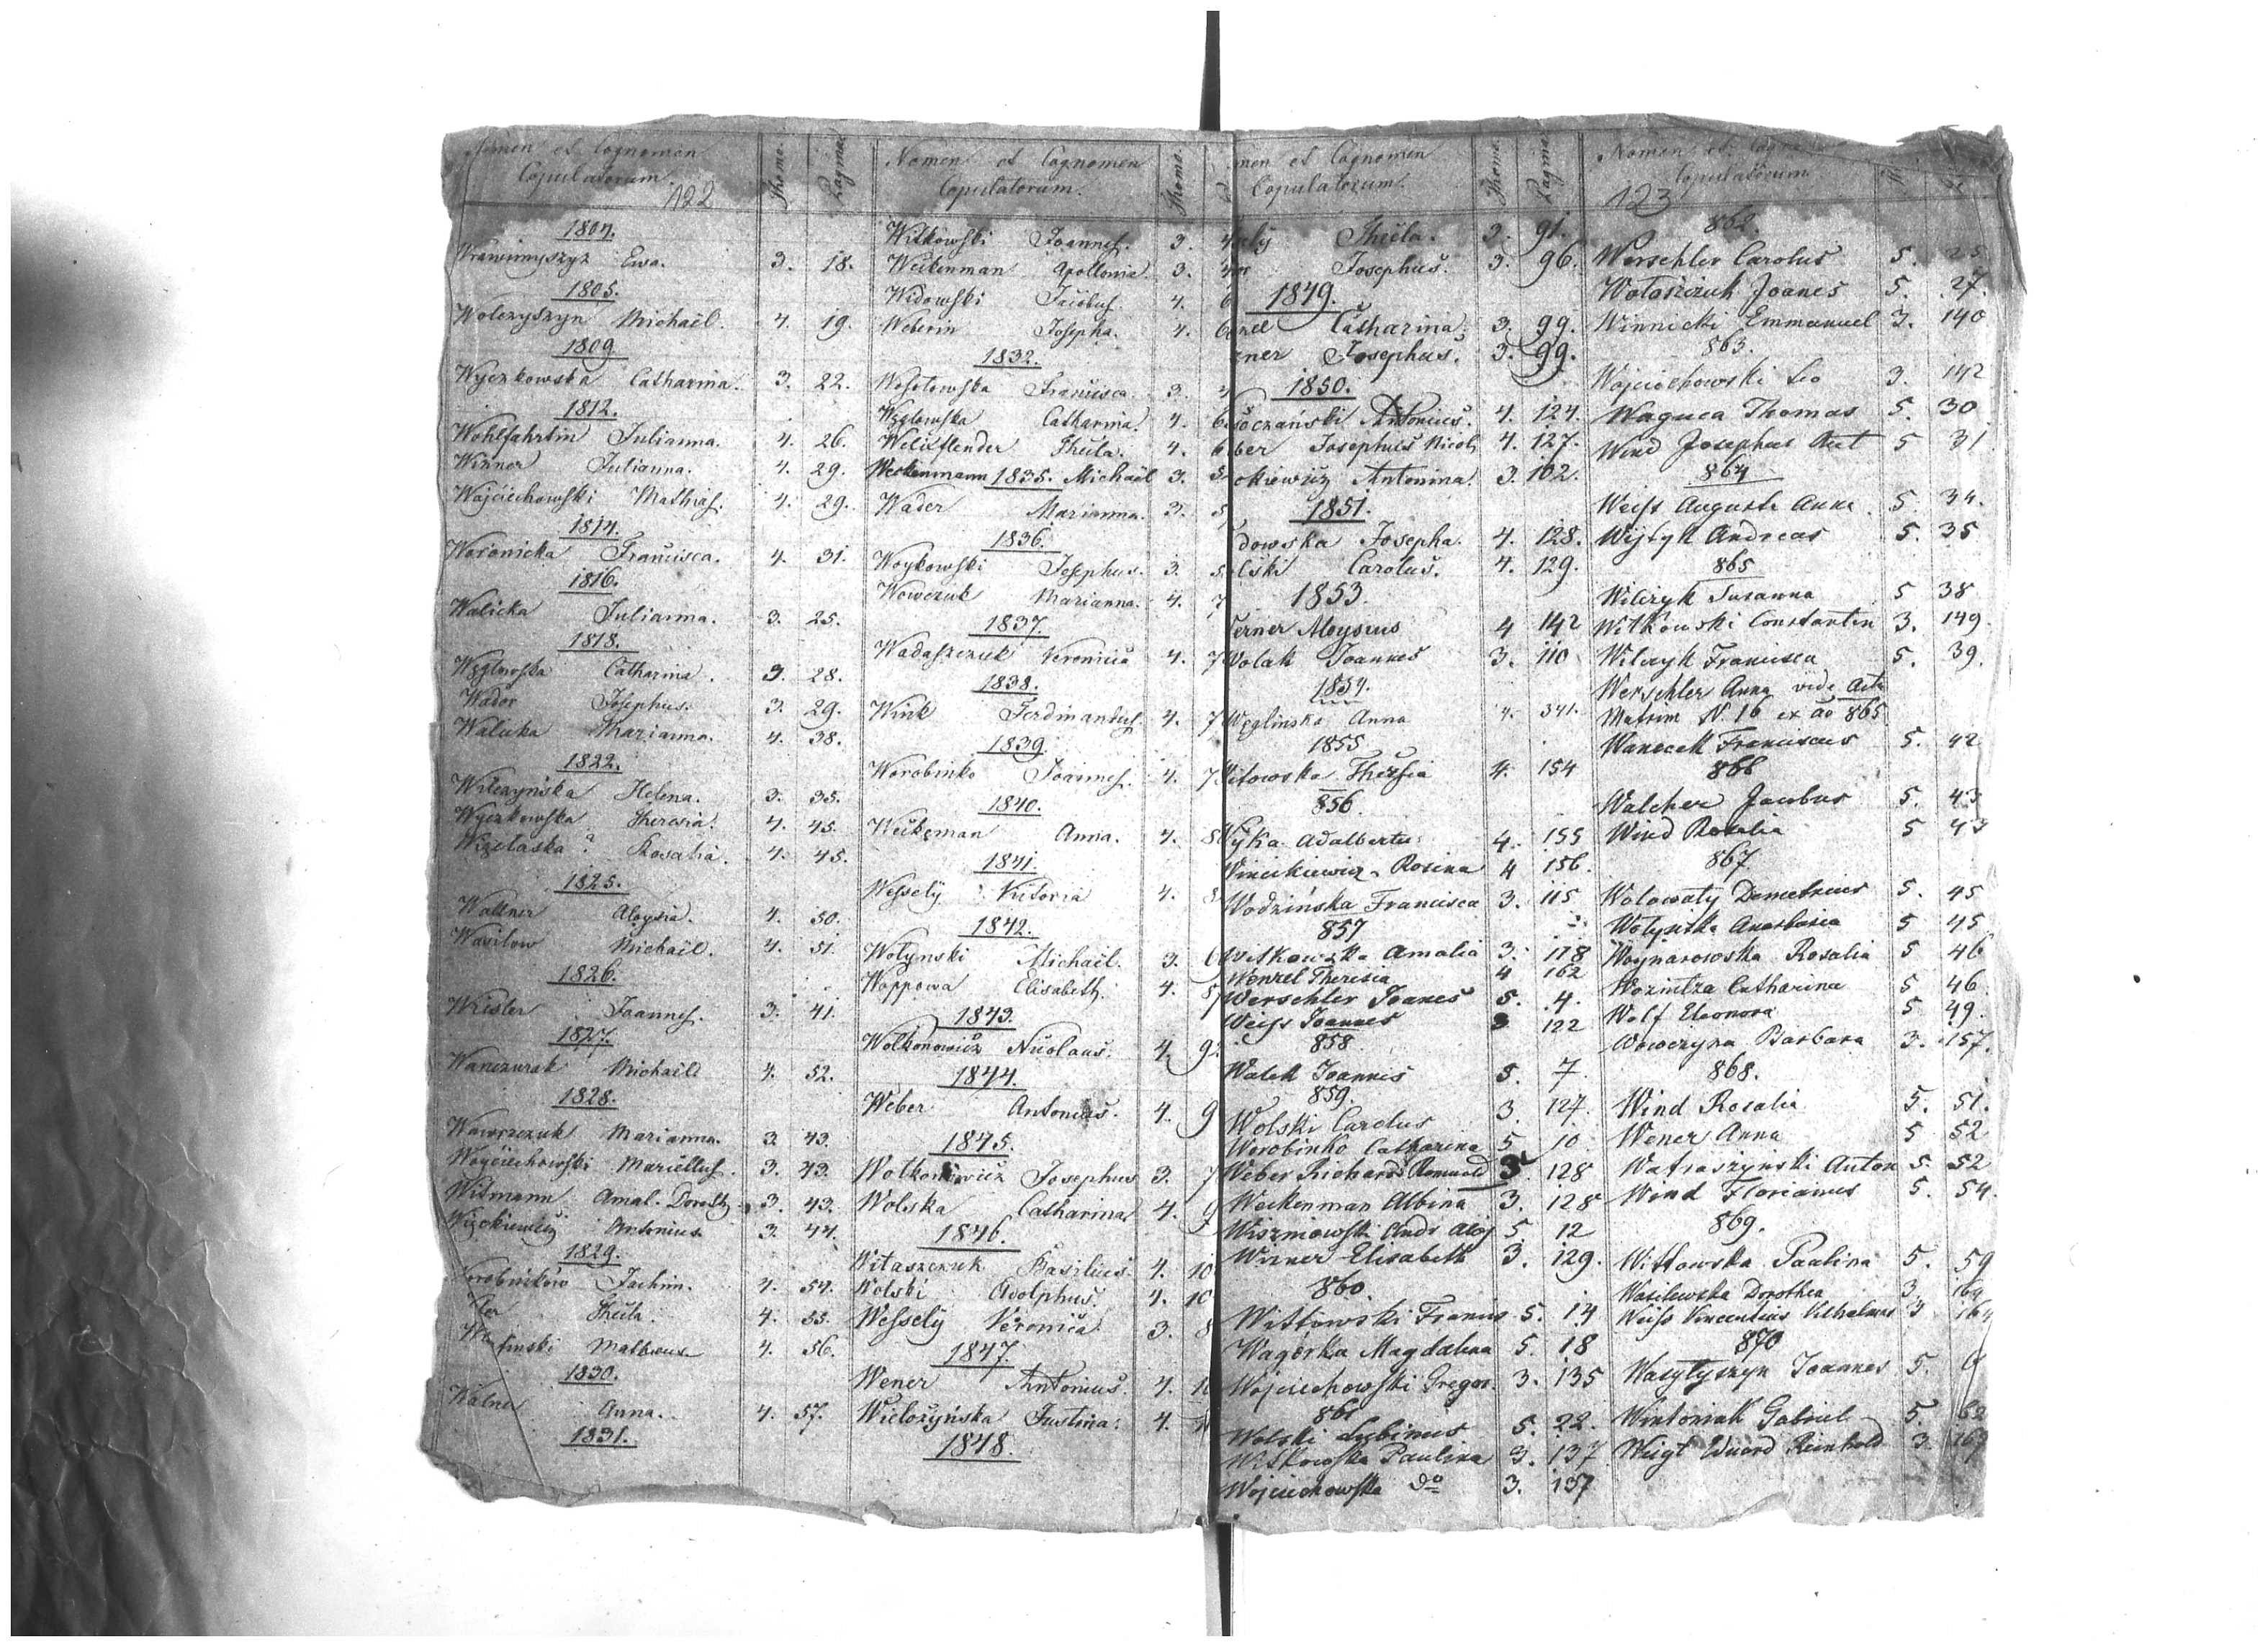 Nomen et Cognomen
Copulatorum.
Thomo.
Pagina
122
1804.
Ewa. 3. 18.
1805.
Wolczyszyn Michaël. 4. 19.
1809
Wyczkowska Catharina. 3. 22.
1812.
Wohlfahrtin Julianna. 4. 26.
Winner Julianna. 4. 29.
Wojciechowski Mathias. 4. 29.
1814.
Woronicka Francisca. 4. 31.
1816.
Walicka Julianna. 3. 25.
1818.
Węglowska Catharina. 3. 28.
Wador Josephus. 3. 29.
Walicka Marianna. 4. 38.
1822.
Wilczyńska Helena. 3. 35.
Wyczkowska Theresia. 4. 45.
Rosalia. 4. 45.
1825.
Wallner Aloysia. 4. 50.
Wasilow Michaël. 4. 51.
1826.
Joannes. 3. 41.
1827.
Wanczurak Michaël 4. 52.
1828.
Wawrzczuk Marianna. 3. 43.
Woyciechowski Marcellus. 3. 43.
Witmann Amal. Doroth. 3. 43.
Antonius. 3. 44.
1829.
Jochim. 4. 54.
Thecla. 4. 55.
Matheus 4. 56.
1830.
Anna. 4. 57.
1831.
Nomen et Cognomen
Copulatorum.
Thomo.
Witkowski Joannes. 3.
Weikenman Apollonia. 3.
Widowski Jacobus. 4.
Weberin Josepha. 4.
1832.
Wesołowska Francisca. 3.
Węglowska Catharina. 4.
Thecla. 4.
Weikenmann 1835. Michaël 3.
Wader Marianna. 3.
1836.
Woykowski Josephus. 3.
Wowczuk Marianna. 4.
1837.
Wadaszczuk Veronica 4.
1838.
Wink Ferdinandus 4.
1839
Worobinko Joannes. 4.
1840.
Weikeman Anna. 4.
1841.
Wessely Victoria 4.
1842.
Wołynski Michaël. 3.
Woppowa Elisabeth. 4.
1843.
Wołkonowicz Nicolaus. 4.
1844.
Weber Antonius. 4.
1845.
Josephus 3.
Wolska Catharina 4.
1846.
Witaszczuk Basilius. 4.
Wolski Adolphus. 4.
Wessely Veronica 3.
1847.
Wener Antonius. 4.
Wielożyńska Justina. 4.
1848.
Cognomen
Copulatorum.
Thomo.
Pagina
Thecla. 3. 91.
Josephus. 3. 96.
1849.
Catharina. 3. 99.
Josephus. 3. 99.
1850.
Antonius. 4. 124.
Josephus Nicol. 4. 127.
Antonina. 3. 102.
1851.
Josepha. 4. 128.
Carolus. 4. 129.
1853.
Aloysius 4 142
Wolak Joannes 3. 110
1854.
Węglinska Anna 4. 341.
1855
Thersia 4. 154
856.
Wyka Adalbertus 4. 155
Wincikiewicz Rosina 4 156.
Wodzińska Francisca 3. 115
857
Witkowska Amalia 3. 118
Wenzel Theresia 4 162
Werschler Joanes 5. 4.
Weiss Joannes 3 122
858
Walek Joannes 5. 7.
859.
Wolski Carolus 3. 127.
Worobinko Catharina 5 10
Weber Richard Romuald 3. 128
Weikenman Albina 3. 128
Wiszniowski Andr Aloj 5 12
Winner Elisabeth 3. 129.
860.
Witkowski Francis. 5. 14
Wagórka Magdalena 5. 18
Wojciechowski Gregor. 3. 135
861
Wolski Lubinus 5. 22.
Witkowska Paulina 3. 137
Wojciechowska do 3. 137
Nomen et
Copulatorum
123
862.
Werschler Carolus 5. 25
Wołoszczuk Joanes 5. 27.
Winnicki Emmanuel 3. 140
863.
Wojciechowski Leo 3. 142
Waguca Thomas 5. 30
Wind Josephus Ant 5 31
864
Weiss Auguste Anna 5. 34.
Wijtyk Andreas 5. 35
865
Wilczyk Susanna 5 38
Witkowski Constantin 3. 149.
Wilczyk Francisca 5. 39.
Werschler Anna vide Acta
Matrim N. 16 ex ao 865
Wanecek Franciscus 5. 42
866
Walcher Jacobus 5. 43
Wind Rosalia 5 43
867.
Wołowaty Demetrius 5. 45
Anastasia 5 45
Wojnarowska Rosalia 5 46
Catharina 5 46
Wolf Eleonora 5 49.
Wowczyna Barbara 3. 157.
868.
Wind Rosalia 5. 51.
Wener Anna 5 52
Watraszyński Anton 5. 52
Wind Florianus 5. 54.
869.
Witkowska Paulina 5. 59
Wasilewska Dorothea 3. 164
Weiss Vincentius Vilhelmus 3 164
870
Wasylyszyn Joannes 5.
Wintoniak Gabriel 5. 62
Weigt Eduard Reinhold 3. 167